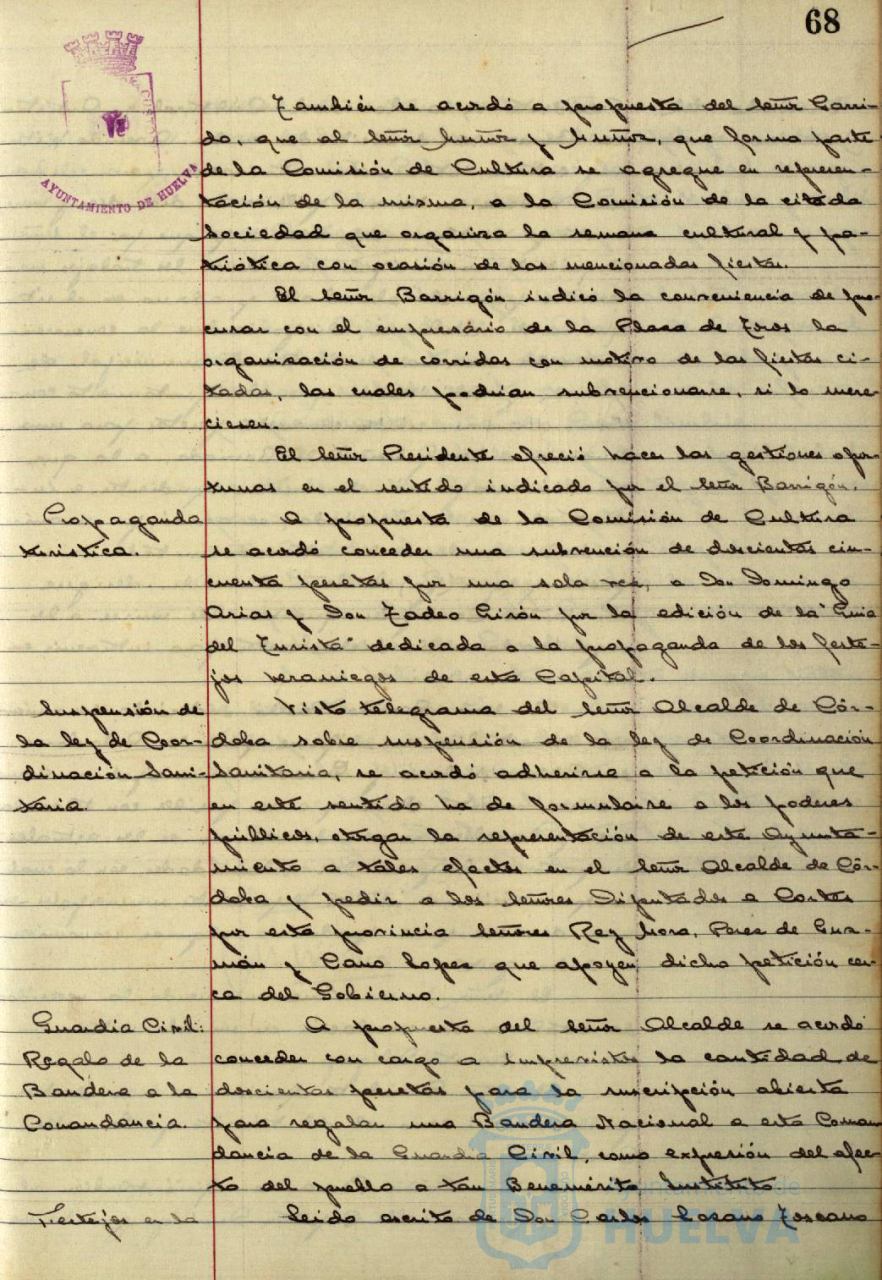 68
AYUNTAMIENTO DE HUELVA
También se acordó a propuesta del señor Garri-
do, que al señor Muñoz y Muñoz, que forma parte
de la Comisión de Cultura se agregue en represen-
tación de la misma, a la Comisión de la citada
Sociedad que organiza la semana cultural y pa-
triótica con ocasión de las mencionadas fiestas.
El señor Barrigón indicó la conveniencia de pro-
curar con el empresario de la Plaza de Toros la
organización de corridas con motivo de las fiestas ci-
tadas, las cuales podrían subvencionarse, si lo mere-
ciesen.
El señor Presidente ofreció hacer las gestiones opor-
tunas en el sentido indicado por el señor Barrigón.
Propaganda
turística.
A propuesta de la Comisión de Cultura
se acordó conceder una subvención de doscientas cin-
cuenta pesetas por una sola vez, a Don Domingo
Arias y Don Tadeo Girón por la edición de la "Guia
del Turista" dedicada a la propaganda de los feste-
jos veraniegos de esta Capital.
Suspensión de
la ley de Coor-
dinación Sani-
taria.
Visto telegrama del señor Alcalde de Cór-
doba sobre suspensión de la ley de Coordinación
Sanitaria, se acordó adherirse a la petición que
en este sentido ha de formularse a los poderes
públicos, otorgar la representación de este Ayunta-
miento a tales efectos en el señor Alcalde de Cór-
doba y pedir a los señores Diputados a Cortes
por esta provincia señores Rey Mora, Perez de Guz-
mán y Cano Lopez que apoyen dicha petición cer-
ca del Gobierno.
Guardia Civil:
Regalo de la
Bandera a la
Comandancia.
A propuesta del señor Alcalde se acordó
conceder con cargo a imprevistos la cantidad de
doscientas pesetas para la suscripción abierta
para regalar una Bandera Nacional a esta Coman
dancia de la Guardia Civil, como expresión del afec-
to del pueblo a tan Benemérito Instituto.
Festejos en la
Leido escrito de Don Carlos Lozano Toscano
HUELVA